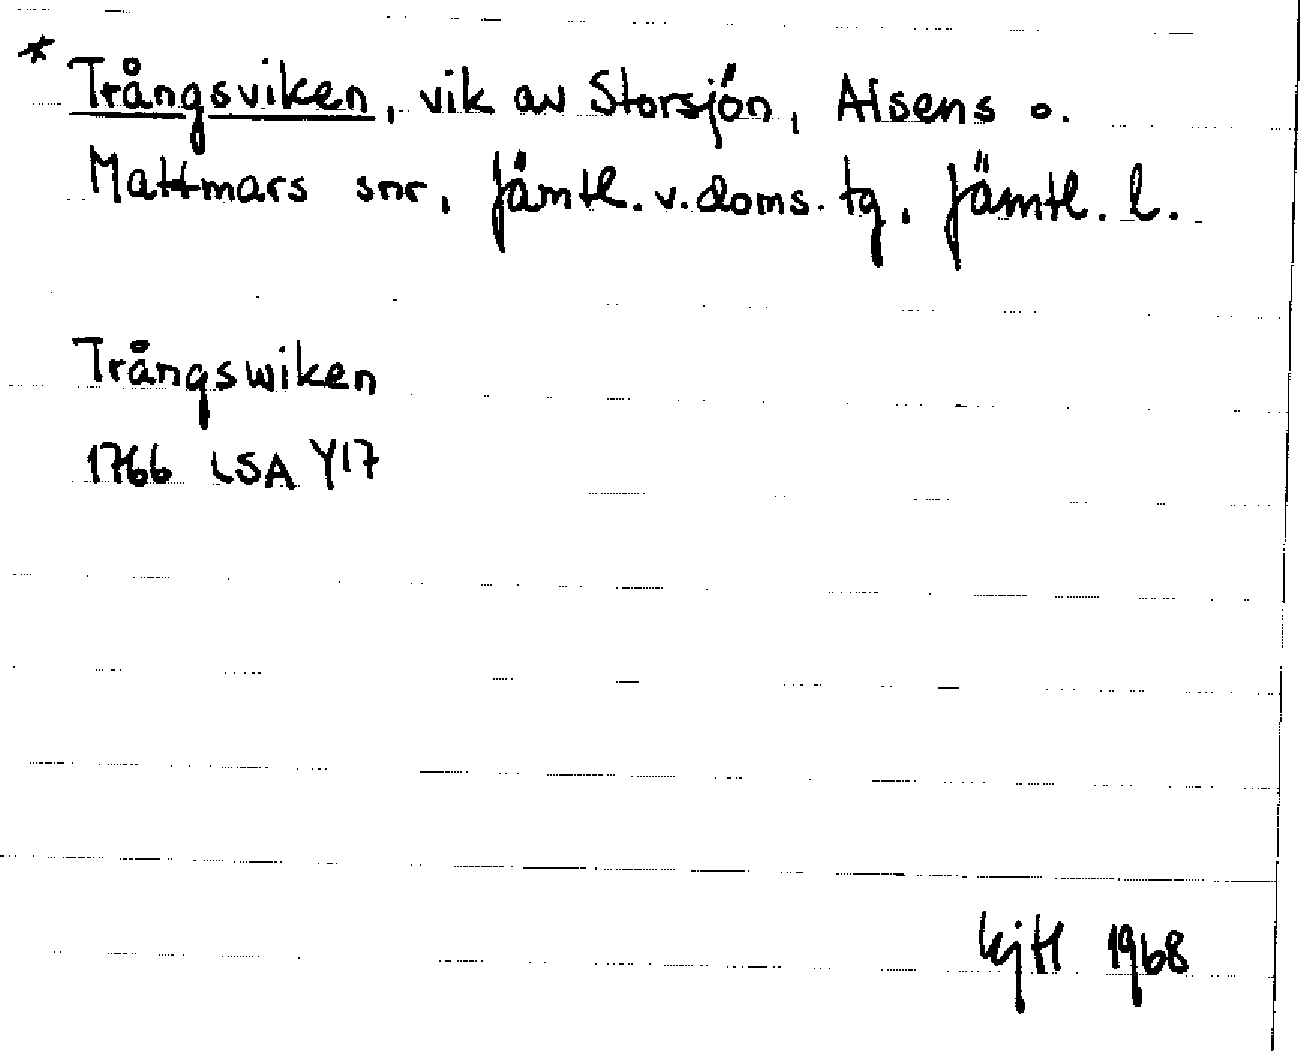 * Trångsviken, vik av Storsjön, Alsens o.
Mattmars snr, Jämtl. v. doms. tg, Jämtl. l.
Trångswiken
1766 LSA Y17
1968